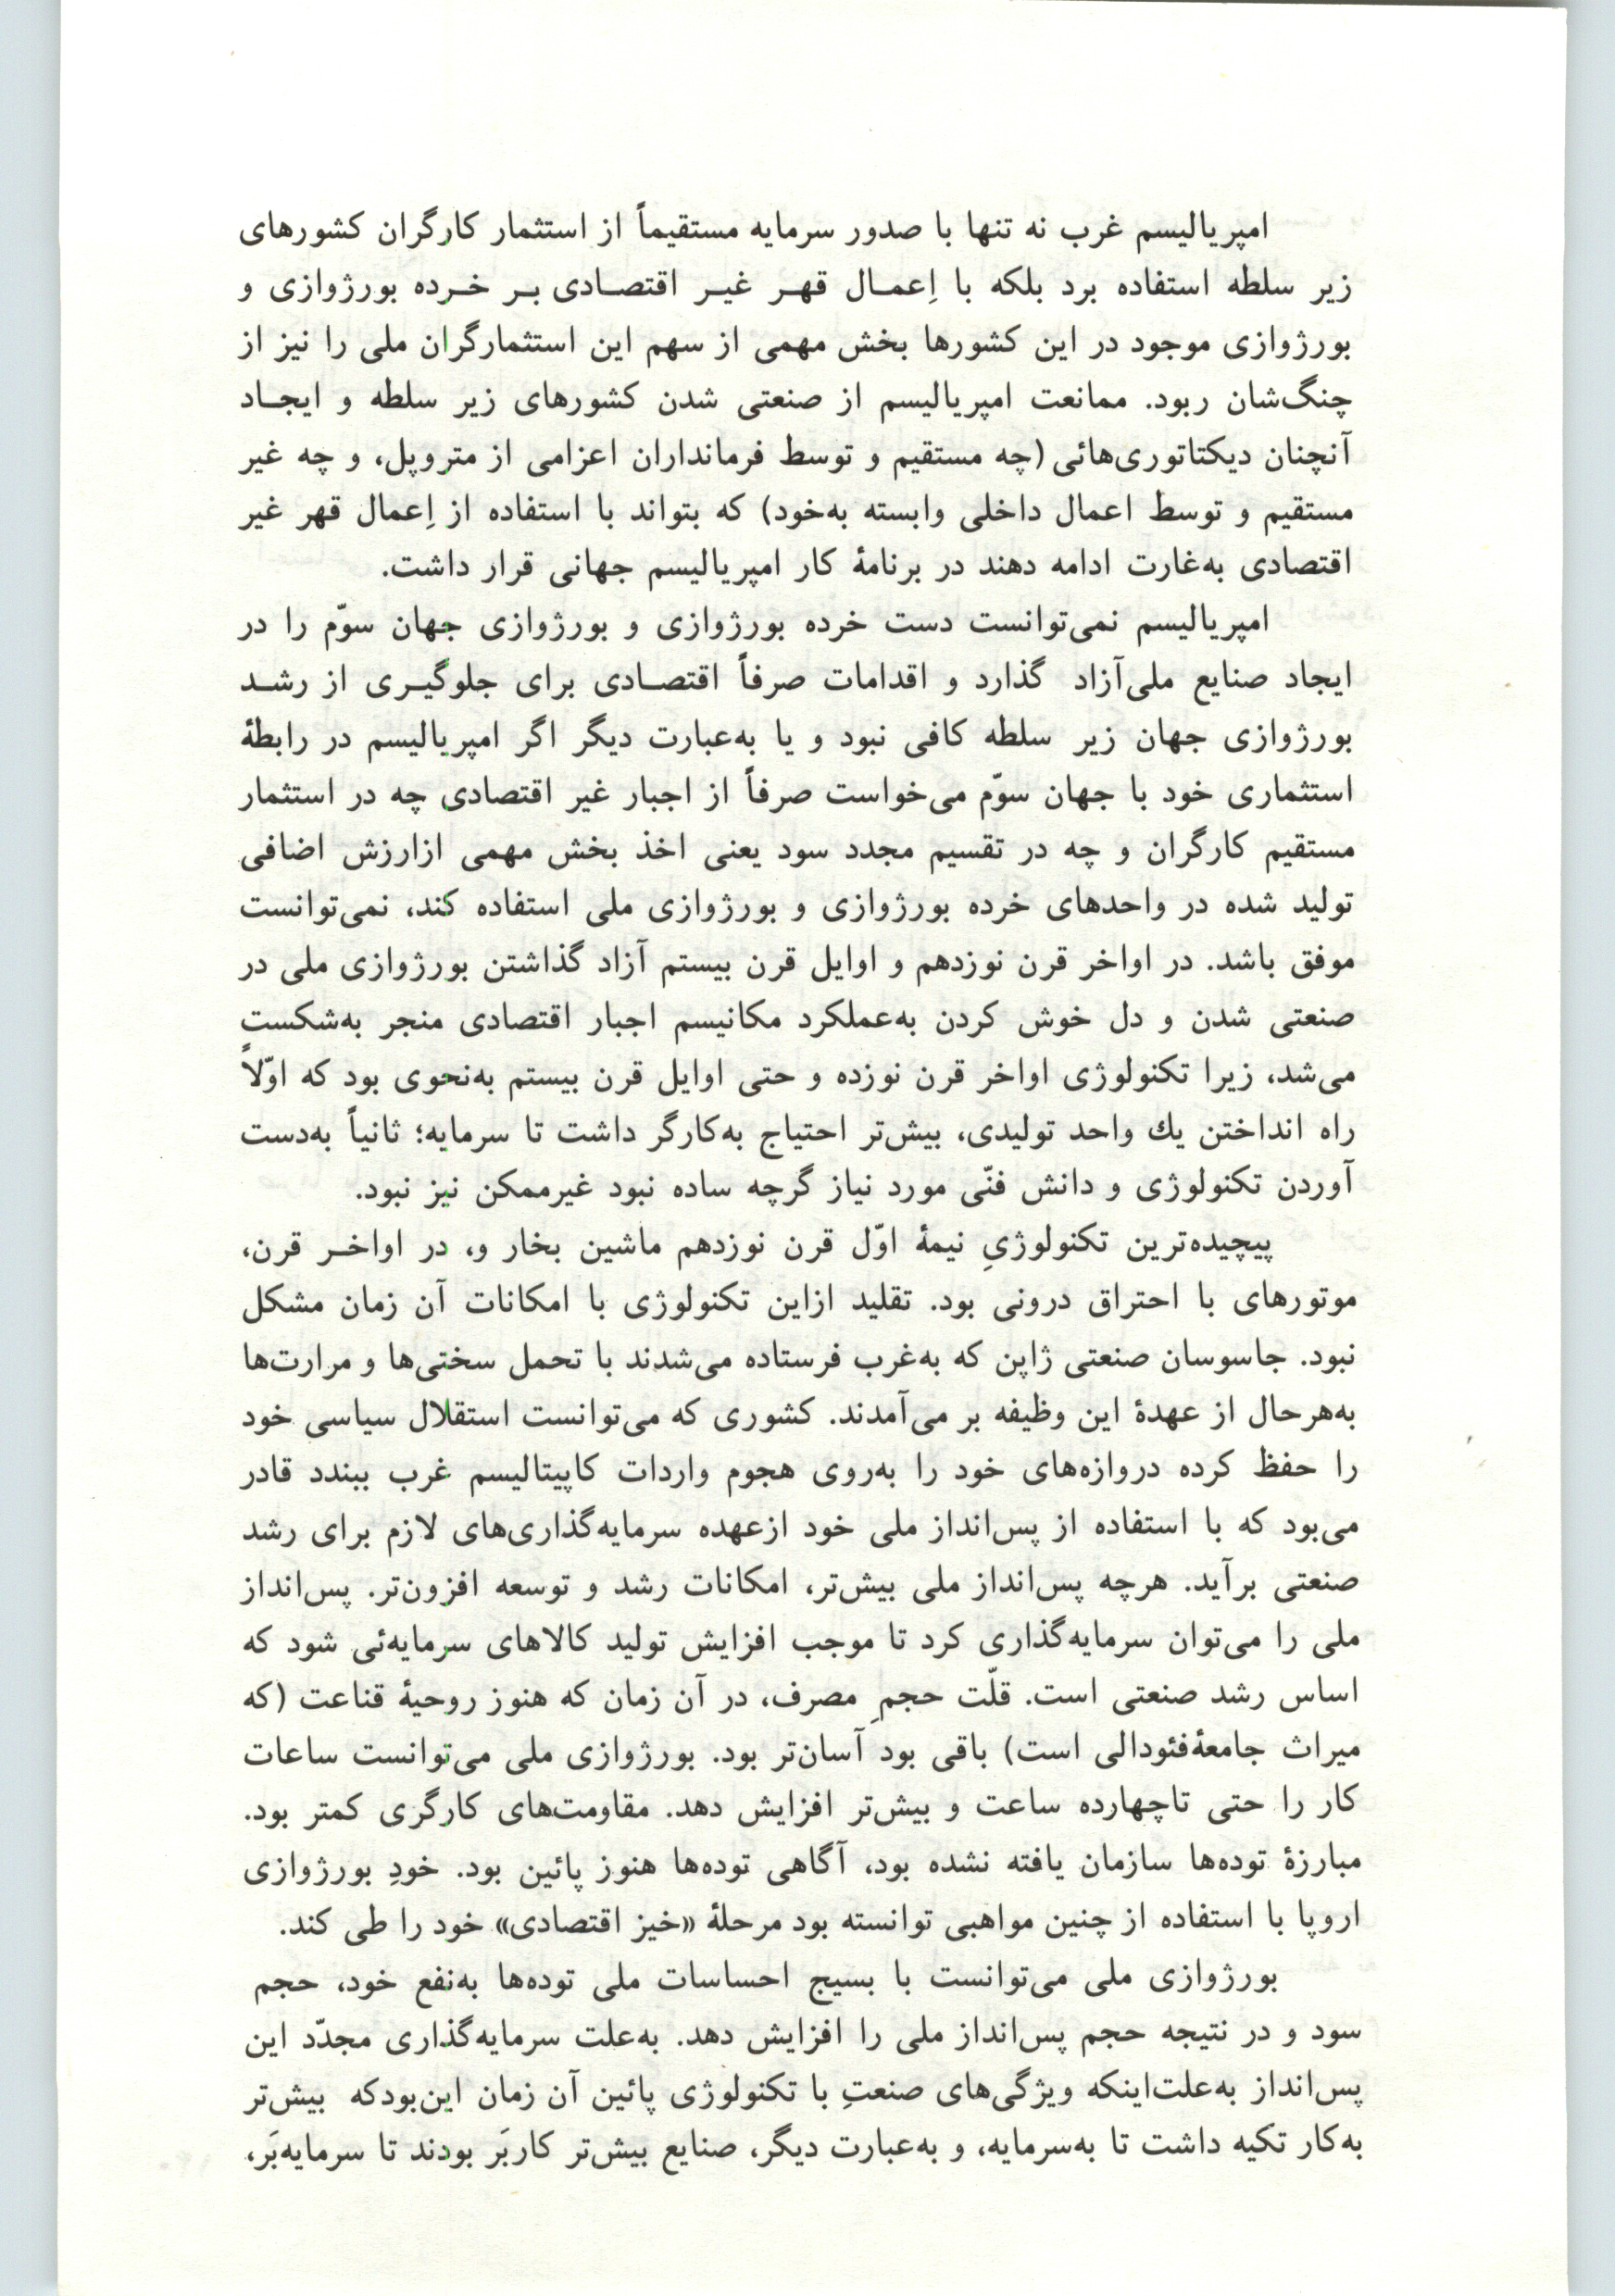 امپریالیسم غرب نه تنها با صدور سرمایه مستقیماً از استثمار کارگران کشورهای
زیر سلطه استفاده برد بلکه با اِعمـال قهـر غیـر اقتصـادی بـر خـرده بورژوازی و
بورژوازی موجود در این کشورها بخش مهمی از سهم این استثمارگران ملی را نیز از
چنگ‌شان ربود. ممانعت امپریالیسم از صنعتی شدن کشورهای زیر سلطه و ایجـاد
آنچنان دیکتاتوری‌هائی (چه مستقیم و توسط فرمانداران اعزامی از متروپل، و چه غیر
مستقیم و توسط اعمال داخلی وابسته به‌خود) که بتواند با استفاده از اِعمال قهر غیر
اقتصادی به‌غارت ادامه دهند در برنامهٔ کار امپریالیسم جهانی قرار داشت.
امپریالیسم نمی‌توانست دست خرده بورژوازی و بورژوازی جهان سوّم را در
ایجاد صنایع ملی‌آزاد گذارد و اقدامات صرفاً اقتصـادی برای جلوگیـری از رشـد
بورژوازی جهان زیر سلطه کافی نبود و یا به‌عبارت دیگر اگر امپریالیسم در رابطهٔ
استثماری خود با جهان سوّم می‌خواست صرفاً از اجبار غیر اقتصادی چه در استثمار
مستقیم کارگران و چه در تقسیم مجدد سود یعنی اخذ بخش مهمی ازارزش اضافی
تولید شده در واحدهای خرده بورژوازی و بورژوازی ملی استفاده کند، نمی‌توانست
موفق باشد. در اواخر قرن نوزدهم و اوایل قرن بیستم آزاد گذاشتن بورژوازی ملی در
صنعتی شدن و دل خوش کردن به‌عملکرد مکانیسم اجبار اقتصادی منجر به‌شکست
می‌شد، زیرا تکنولوژی اواخر قرن نوزده و حتی اوایل قرن بیستم به‌نحوی بود که اوّلاً
راه انداختن یك واحد تولیدی، بیش‌تر احتیاج به‌کارگر داشت تا سرمایه؛ ثانیاً به‌دست
آوردن تکنولوژی و دانش فنّی مورد نیاز گرچه ساده نبود غیرممکن نیز نبود.
پیچیده‌ترین تکنولوژیِ نیمهٔ اوّل قرن نوزدهم ماشین بخار و، در اواخـر قرن،
موتورهای با احتراق درونی بود. تقلید ازاین تکنولوژی با امکانات آن زمان مشکل
نبود. جاسوسان صنعتی ژاپن که به‌غرب فرستاده می‌شدند با تحمل سختی‌ها و مرارت‌ها
به‌هرحال از عهدهٔ این وظیفه بر می‌آمدند. کشوری که می‌توانست استقلال سیاسی خود
را حفظ کرده دروازه‌های خود را به‌روی هجوم واردات کاپیتالیسم غرب ببندد قادر
می‌بود که با استفاده از پس‌انداز ملی خود ازعهده سرمایه‌گذاری‌های لازم برای رشد
صنعتی برآید. هرچه پس‌انداز ملی بیش‌تر، امکانات رشد و توسعه افزون‌تر. پس‌انداز
ملی را می‌توان سرمایه‌گذاری کرد تا موجب افزایش تولید کالاهای سرمایه‌ئی شود که
اساس رشد صنعتی است. قلّت حجمِ مصرف، در آن زمان که هنوز روحیهٔ قناعت (که
میراث جامعهٔفئودالی است) باقی بود آسان‌تر بود. بورژوازی ملی می‌توانست ساعات
کار را حتی تاچهارده ساعت و بیش‌تر افزایش دهد. مقاومت‌های کارگری کمتر بود.
مبارزهٔ توده‌ها سازمان یافته نشده بود، آگاهی توده‌ها هنوز پائین بود. خودِ بورژوازی
اروپا با استفاده از چنین مواهبی توانسته بود مرحلهٔ «خیز اقتصادی» خود را طی کند.
بورژوازی ملی می‌توانست با بسیج احساسات ملی توده‌ها به‌نفع خود، حجم
سود و در نتیجه حجم پس‌انداز ملی را افزایش دهد. به‌علت سرمایه‌گذاری مجدّد این
پس‌انداز به‌علت‌اینکه ویژگی‌های صنعتِ با تکنولوژی پائین آن زمان این‌بودکه بیش‌تر
به‌کار تکیه داشت تا به‌سرمایه، و به‌عبارت دیگر، صنایع بیش‌تر کاربَر بودند تا سرمایه‌بَر،